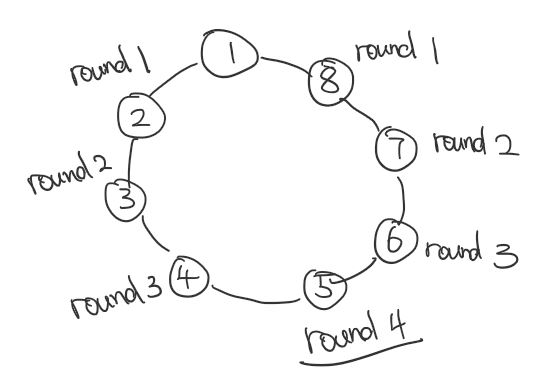 1
round 1
8
round 1
2
7
round 2
round 2
3
6
round 3
4
round 3
5
round 4